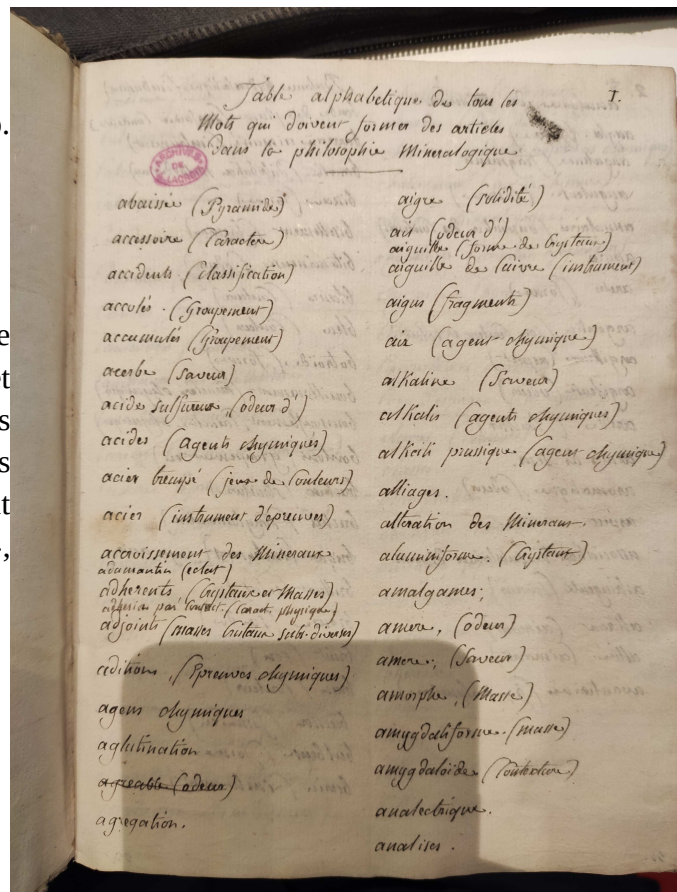 Table alphabetique de tous les
Mots qui doivent former des articles
dans la philosophie Mineralogique
1.
ARCHIVES
DE
abaissée (Pyramide)
accessoire (Caractere)
accidents (classification)
accolés (Groupement)
accumulés (Groupement)
acerbe (Saveur)
acide sulfureux (odeur d')
acides (agents chymiques)
acier trempé (jeux de Couleurs)
acier (instrument d'epreuves)
accroissement des Mineraux
adamantin (eclat)
adherents (Crystaux et Masses)
adhesion par (caract. physique)
adjoints (masses
aditions (Epreuves chymiques)
agens chymiques
aglutination
agreable (odeur)
agregation.
aigre (solidité)
ail (odeur d')
aiguille (forme de Crystaux)
aiguille de Cuivre (instrument)
aigus (fragments)
air (agent chymique)
alkaline (Saveur)
alkalis (agents chymiques)
alkali prussique (agent chymique)
alliages.
alteration des Mineraux
aluminiforme. (Crystaux)
amalgames;
amere, (odeur)
amere; (Saveur)
amorphe, (Masse)
amygdaliforme (masse)
amygdaloïde (Contexture)
analectrique.
analises.
e
et
s
s
t
,